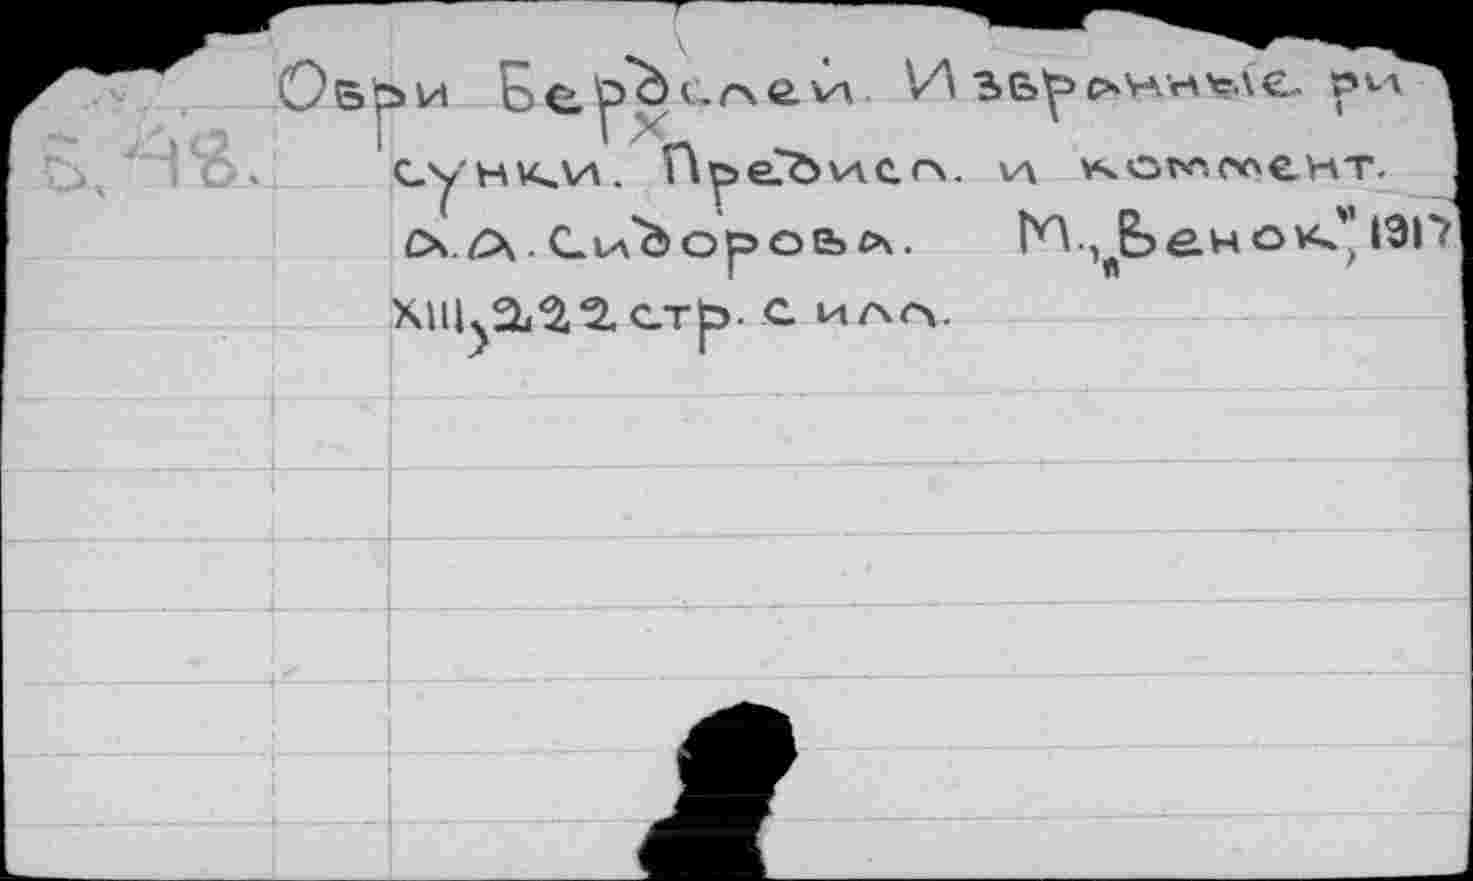 Обри Бердслей. Избранные ри
Б. 48. сунки. Предисл. и коммент.
А.А. Сидорова. М., „Венок", 1917
XIII, 222 стр. с илл.